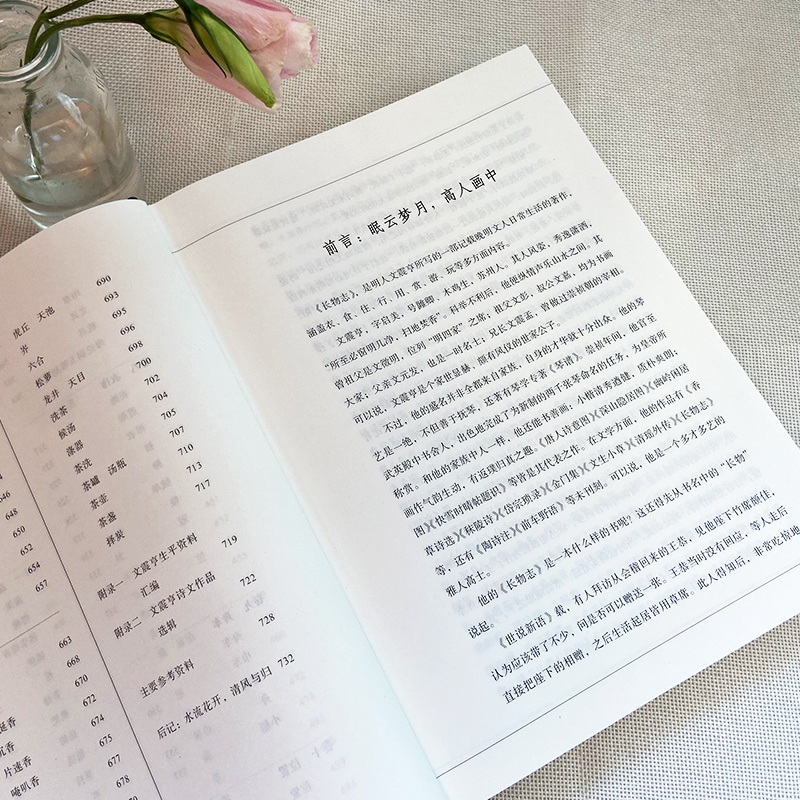 646
648
650
652
654
657
663
668
670
672
674
675
677
678
涎香
沉香
片速香
唵叭香
虎丘 天池 690
岕 693
六合 695
松萝 696
龙井 天目 698
洗茶 700
候汤 702
涤器 704
茶洗 705
茶罐 汤瓶 707
茶壶 710
茶盏 713
择炭 717
附录一 文震亨生平资料
汇编 719
附录二 文震亨诗文作品
选辑 722
主要参考资料 728
后记：水流花开，清风与归 732
前言：眠云梦月，高人画中
《长物志》，是明人文震亨所写的一部记载晚明文人日常生活的著作，
涵盖衣、食、住、行、用、赏、游、玩等多方面内容。
文震亨，字启美，号雁卿、木鸡生，苏州人。其人风姿，秀逸潇洒，
“所至必窗明几净，扫地焚香”。科举不利后，他便纵情声乐山水之间。其
曾祖父是文徵明，位列“明四家”之席，祖父文彭、叔公文嘉，均为书画
大家；父亲文元发，也是一时名士；兄长文震孟，曾做过崇祯朝的宰相。
可以说，文震亨是个家世显赫、颇有风仪的世家公子。
不过，他的盛名并非全都来自家族，自身的才华就十分出众。他的琴
艺是一绝，不但善于抚琴，还著有琴学专著《琴谱》。崇祯年间，他官至
武英殿中书舍人，出色地完成了为新制的两千张琴命名的任务，为皇帝所
称赏。和他的家族中人一样，他还能书善画，小楷清秀遒健，质朴肃朗；
画作气韵生动，有返璞归真之趣。《唐人诗意图》《深山隐居图》《幽岭闲居
图》《快雪时晴帖题识》等皆是其代表之作。在文学方面，他的作品有《香
草诗选》《秣陵诗》《岱宗琐录》《金门集》《文生小草》《清瑶外传》《长物志》
等，还有《陶诗注》《前车野语》等未刊刻。可以说，他是一个多才多艺的
雅人高士。
他的《长物志》是一本什么样的书呢？这还得先从书名中的“长物”
说起。
《世说新语》载，有人拜访从会稽回来的王恭，见他座下竹席颇佳，
认为应该带了不少，问是否可以赠送一张。王恭当时没有回应，等人走后
直接把座下的相赠，之后生活起居皆用草席。此人得知后，非常吃惊地